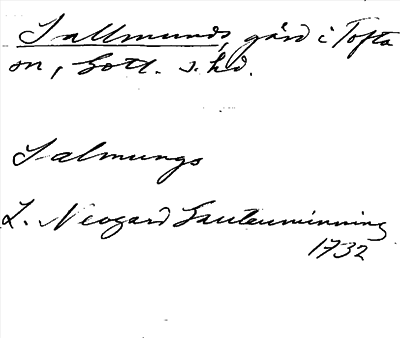 Sallmunds, gård i Tofta
sn, Gotl. s. hd.
Salmungs
L. Neogard Gauteminning
1732